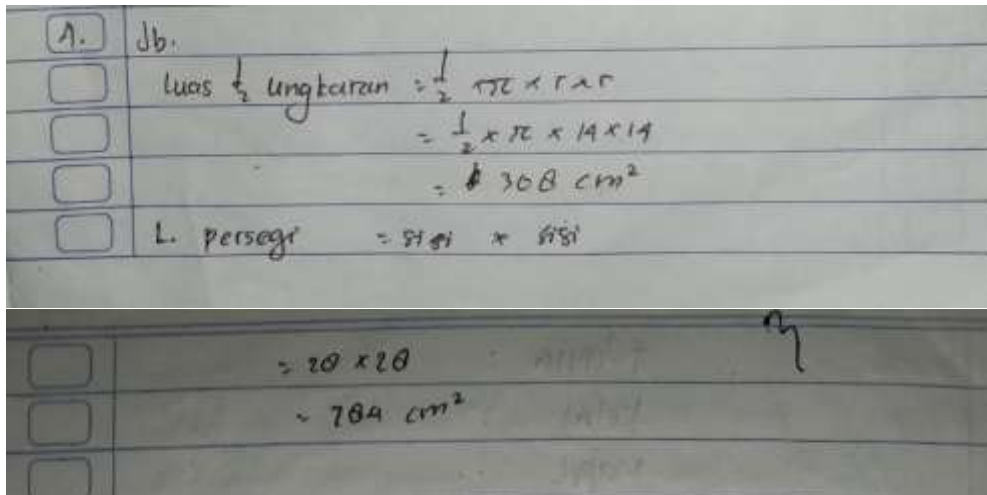 1. Jb.
Luas 1/2 lingkaran = 1/2 π × r × r
= 1/2 × π × 14 × 14
= 308 cm²
L. persegi = sisi × sisi
= 28 × 28
= 784 cm²